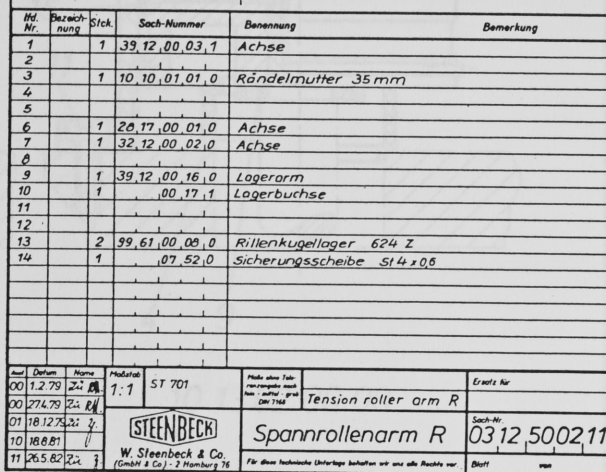 lfd. Nr. Bezeichnung Stck. Sach-Nummer Benennung Bemerkung
1 1 39,12,00,03,1 Achse
2
3 1 10,10,01,01,0 Rändelmutter 35mm
4
5
6 1 28,17,00,01,0 Achse
7 1 32,12,00,02,0 Achse
8
9 1 39,12,00,16,0 Lagerarm
10 1 00,17,1 Lagerbuchse
11
12
13 2 99,61,00,08,0 Rillenkugellager 624 Z
14 1 07,52,0 Sicherungsscheibe St 4 x 0,6
Ausf Datum Name
00 1.2.79 Zü
00 27.4.79 Zü
01 18.12.79 Zü
10 18.8.81
11 26.5.82 Zü
Maßstab
1:1
ST 701
Maße ohne Toleranzangabe nach
fein - mittel - grob
DIN 7168
Tension roller arm R
Ersatz für
STEENBECK
W. Steenbeck & Co.
(GmbH & Co) - 2 Hamburg 76
Spannrollenarm R
Sach-Nr.
03,12,5002,11
Für diese technische Unterlage behalten wir uns alle Rechte vor.
Blatt von